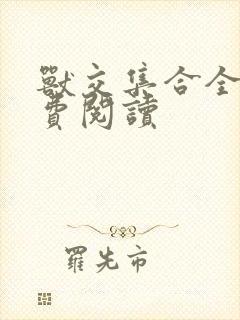 獸交集合全
費閱讀
羅先市